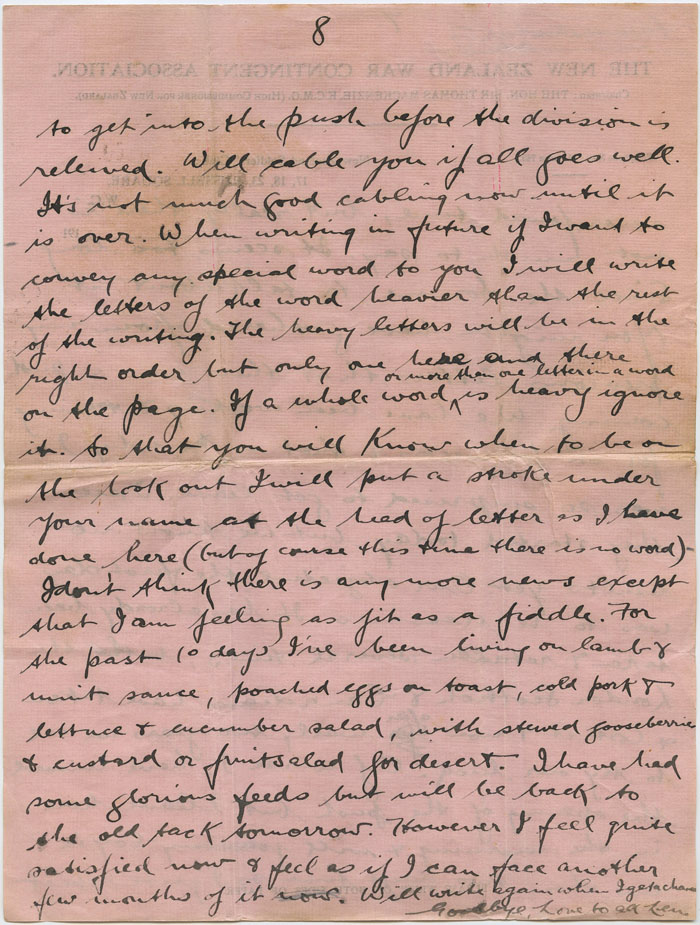 8
to get into the push before the division is
relieved. Will cable you if all goes well.
It's not much good cabling now until it
is over. When writing in future if I want to
convey any special word to you I will write
the letters of the word heavier than the rest
of the writing. The heavy letters will be in the
right order but only one here and there
or more than one letter in a word
on the page. If a whole word ^ is heavy ignore
it. So that you will know when to be on
the look out I will put a stroke under
your name at the head of letter as I have
done here (but of course this time there is no word) -
I don't think there is any more news except
that I am feeling as fit as a fiddle. For
the past 10 days I've been living on lamb &
mint sauce, poached eggs on toast, cold pork &
lettuce & cucumber salad, with stewed gooseberries
& custard or fruitsalad for desert. I have had
some glorious feeds but will be back to
the old tack tomorrow. However I feel quite
satisfied now & feel as if I can face another
few months of it now. Will write again when I get a chance
Goodbye, Love to all
THE NEW ZEALAND WAR CONTINGENT ASSOCIATION.
Chairman: THE HON. SIR THOMAS MACKENZIE, K.C.M.G. (High Commissioner for New Zealand).